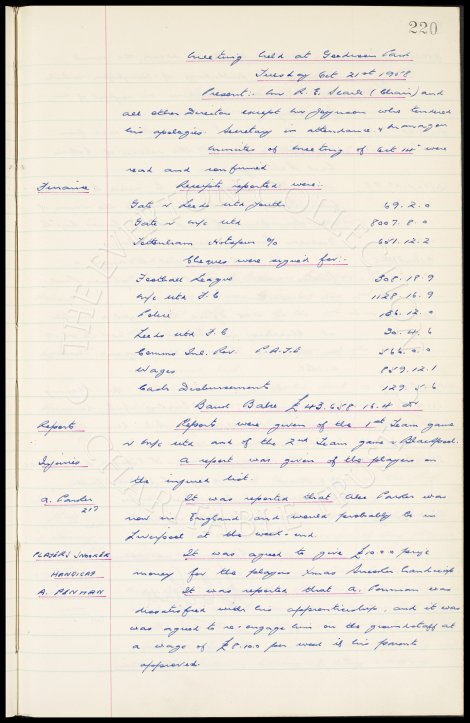 220
Meeting held at Goodison Park
Tuesday Oct 21st 1958
Present:- Mr R. E. Searle (Chair) and
all other Directors except Mr Jaynson who tendered
his apologies Secretary in attendance & Manager
Minutes of Meeting of Oct 14th were
read and confirmed
Finance Receipts reported were:-
Gate v Leeds Utd Youth 69. 2. 0
Gate v M/c Utd 8007. 8. 0
Tottenham Hotspur 651. 12. 2
Cheques were signed for:-
Football League 308. 18. 9
M/c Utd F.C 1128. 16. 9
Police 136. 12. 0
Leeds Utd F.C 30. 4. 6
Comms Inl. Rev. P.A.Y.E 566. 0. 0
Wages 859. 12. 1
Cash Disbursements 129. 5. 6
Bank Balce £43,658. 16. 4
Reports Reports were given of the 1st Team game
v M/c Utd and of the 2nd Team game v Blackpool.
Injuries A report was given of the players on
the injured list.
A. Parker It was reported that Alex Parker was
217
now in England and would probably be in
Liverpool at the week-end.
PLAYERS SNOOKER It was agreed to give £10.0.0 prize
HANDICAP money for the players Xmas Snooker handicap
A. PENMAN It was reported that A. Penman was
dissatisfied with his apprenticeship, and it was
was agreed to re-engage him on the groundstaff at
a wage of £8.10.0 per week if his parent
approved.
THE EVERTON COLLECTION CHARITABLE TRUST